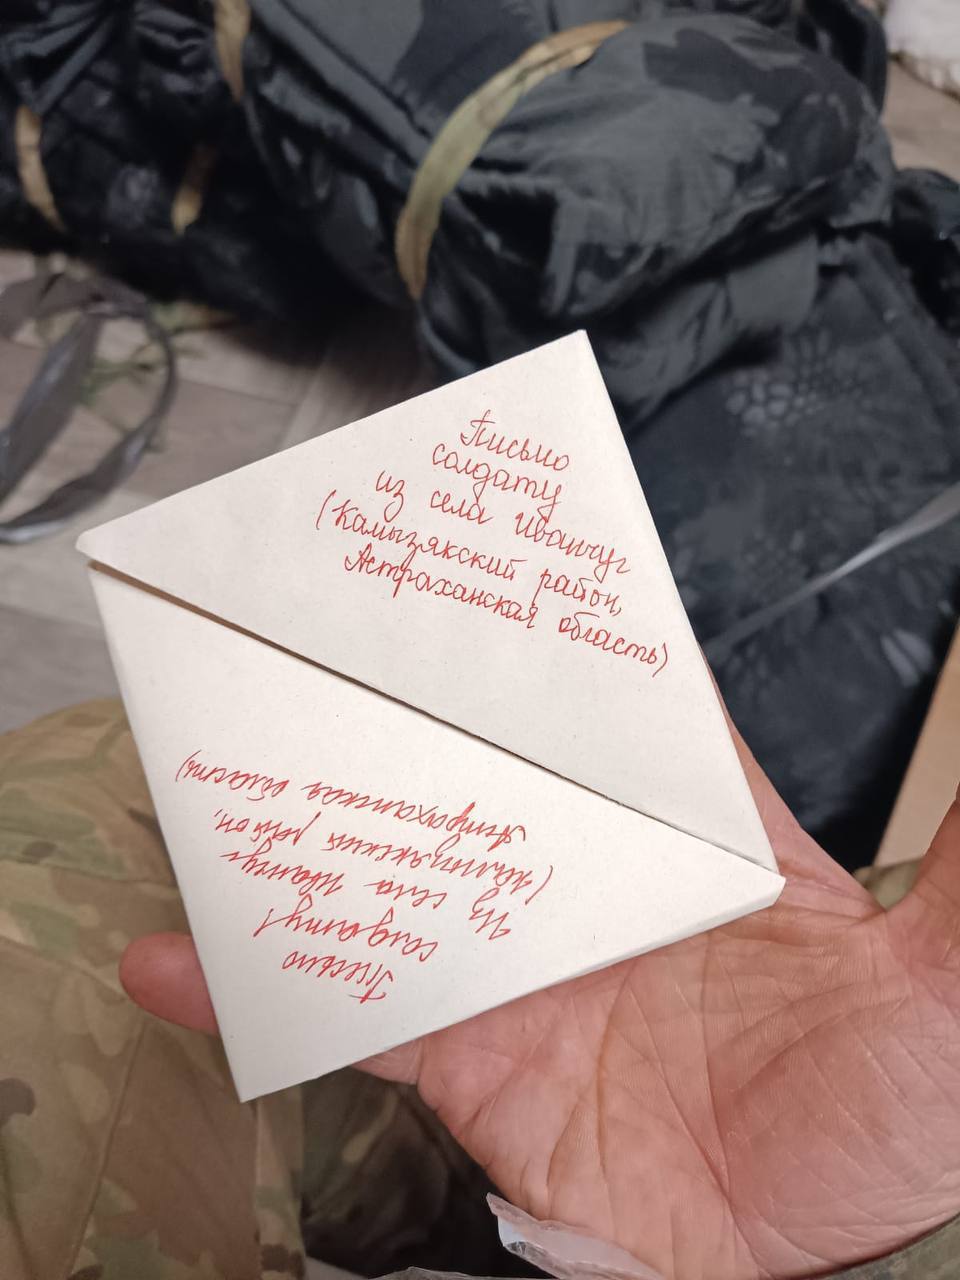 Письмо
солдату
из села Иванчуг
(Камызякский район,
Астраханская область)
Письмо
солдату!
Из села Иванчуг
(Камызякский район,
Астраханская область)